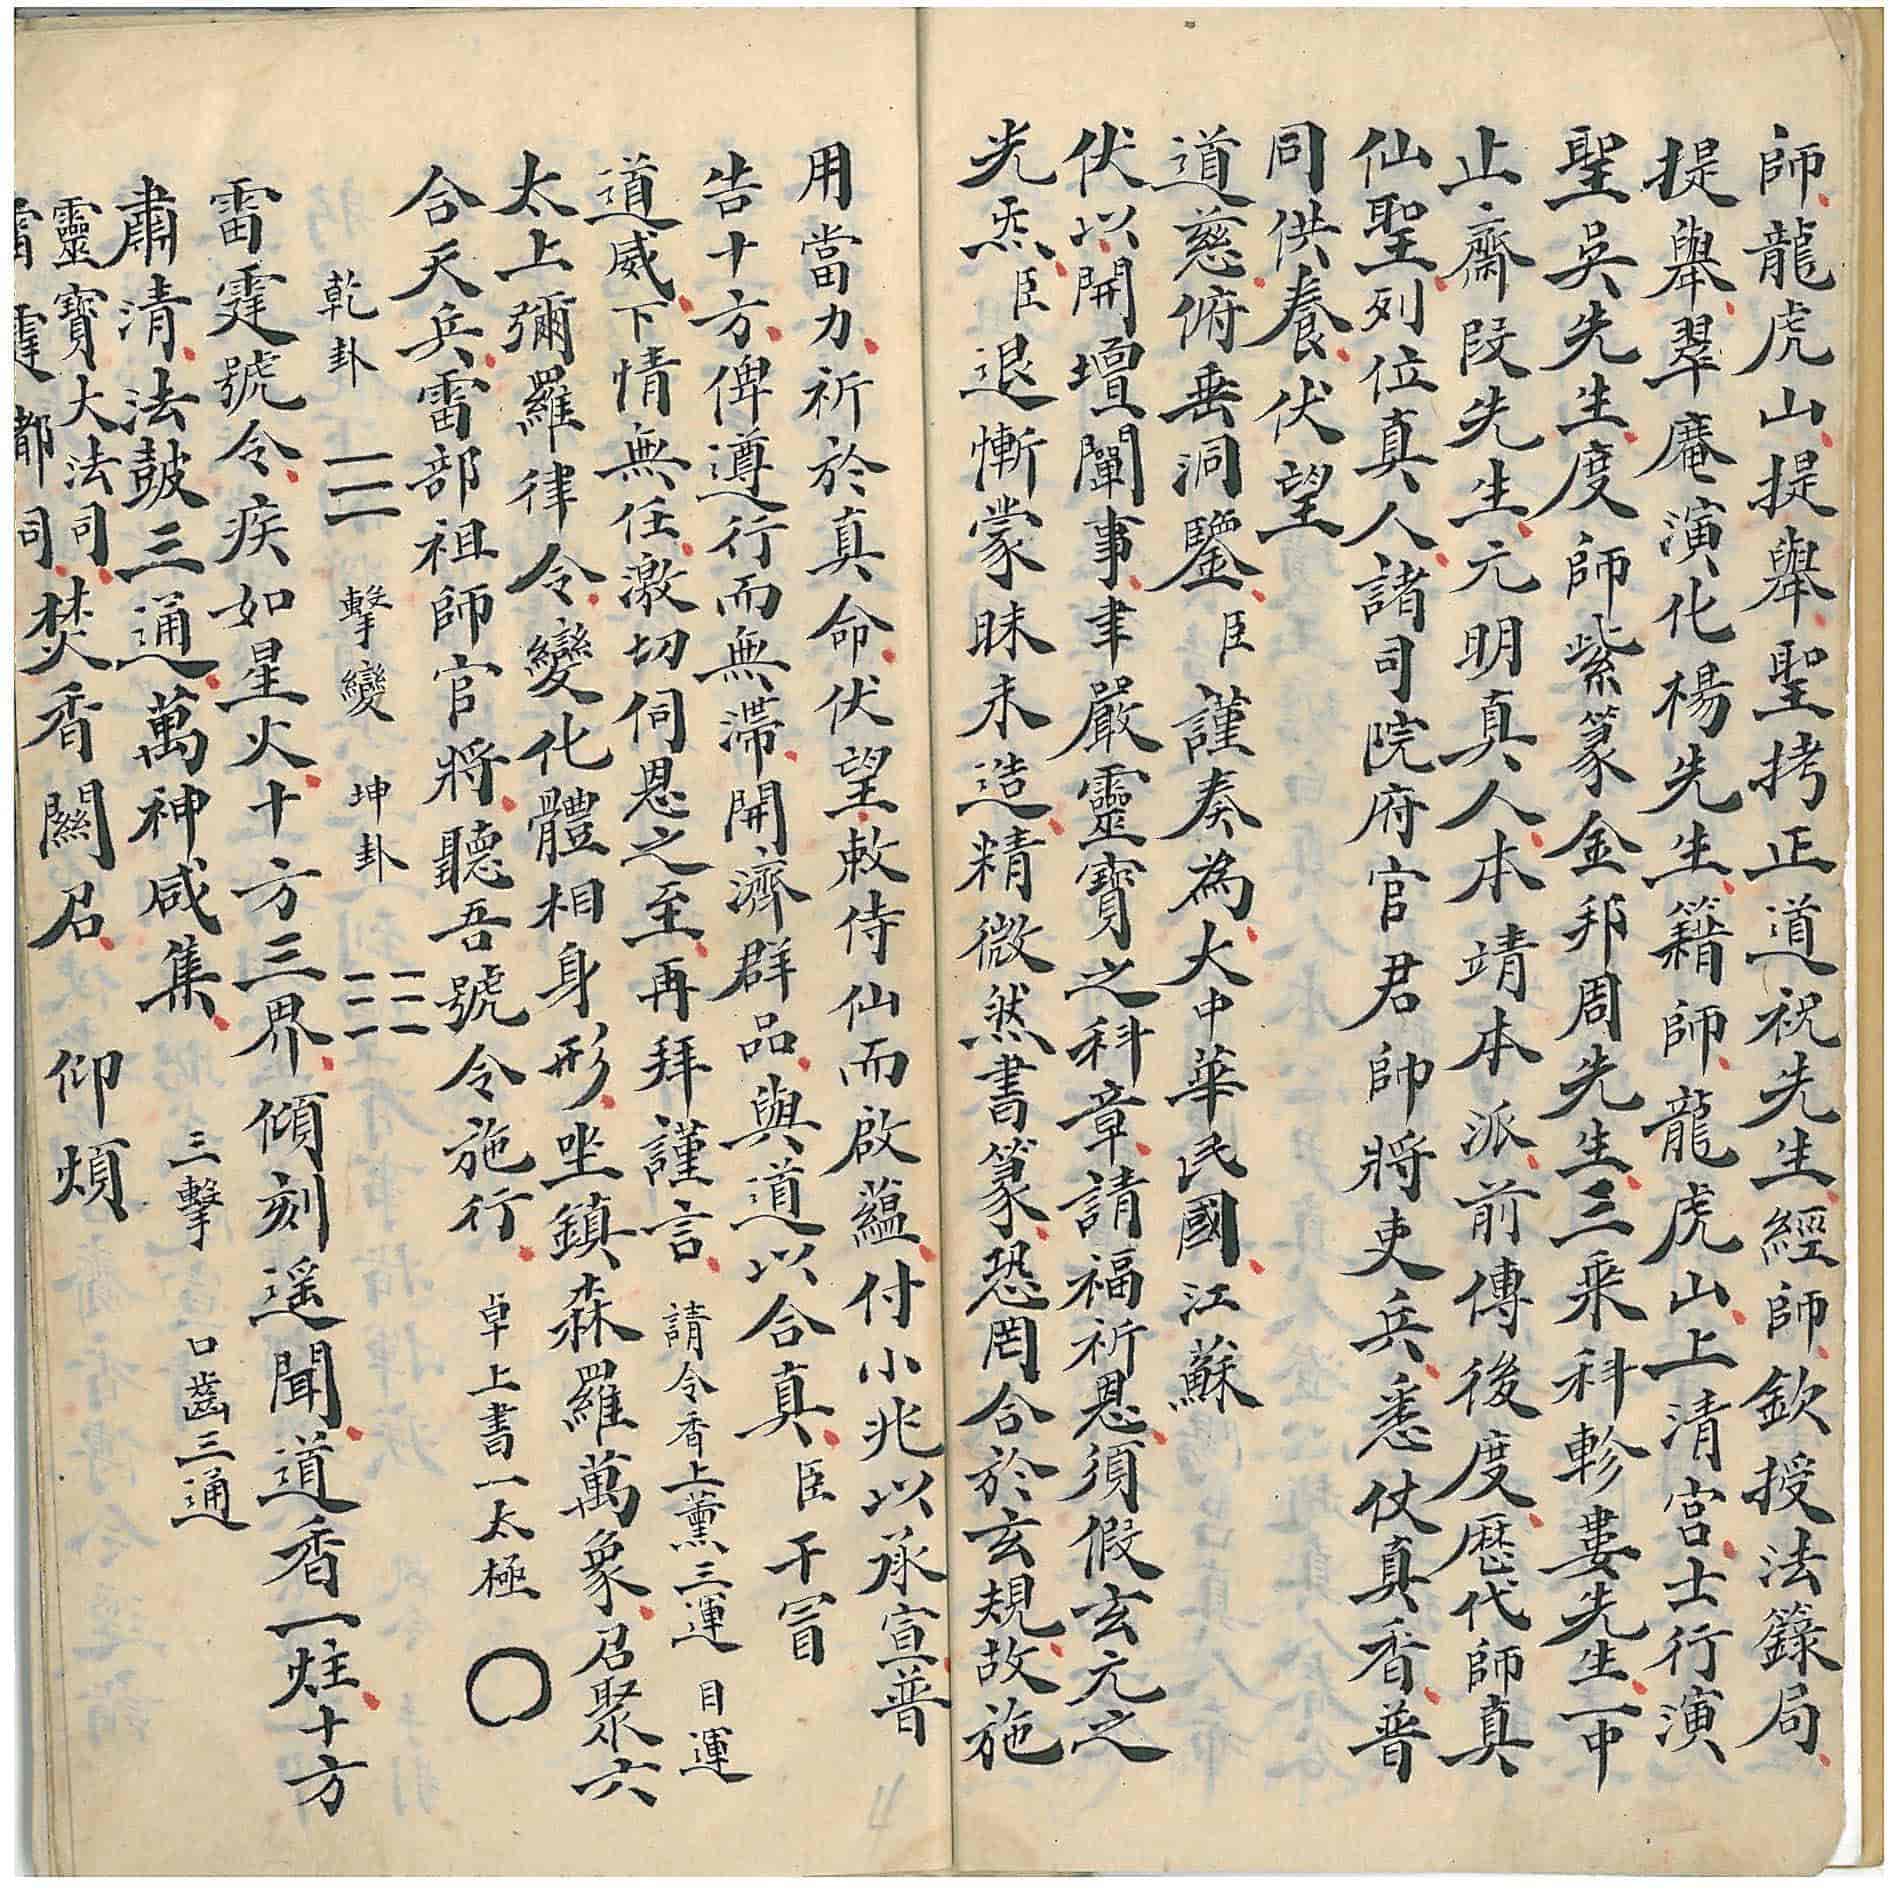 師龍虎山提舉聖拷正道祝先生經師欽授法籙局
提舉翠庵演化楊先生籍師龍虎山上清宮士行演
聖吳先生度師紫篆金邦周先生三乘科軫婁先生一中
止齋段先生元明真人本靖本派前傳後度歷代師真
仙聖列位真人諸司院府官君帥將吏兵悉仗真香普
同供養伏望
道慈俯垂洞鑒臣謹奏為大中華民國江蘇
伏以開壇闡事聿嚴靈寶之科章請福祈恩須假玄元之
光炁臣退慚蒙昧未造精微然書篆恐罔合於玄規故施
用當力祈於真命伏望敕侍仙而啟蘊付小兆以承宣普
告十方俾遵行而無滯開濟群品與道以合真臣干冒
道威下情無任激切伺恩之至再拜謹言 請令香上薰三運 目運
太上彌羅律令變化體相身形坐鎮森羅萬象召聚六
合天兵雷部祖師官將聽吾號令施行 卓上書一太極 〇
乾卦 ☰ 擊變 坤卦 ☷
雷霆號令疾如星火十方三界傾刻遥聞道香一炷十方
肅清法鼓三通萬神咸集 三擊 口齒三通
靈寶大法司
雷霆都司 焚香關召 仰煩